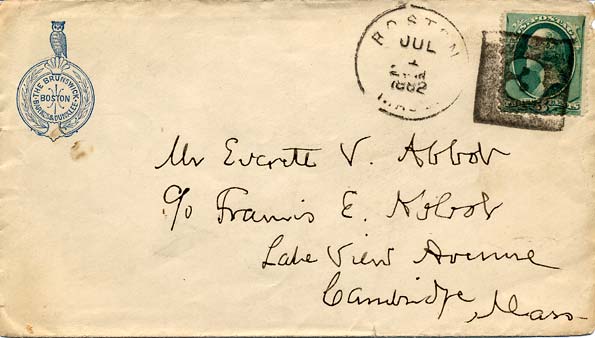 THE BRUNSWICK
BOSTON
BARNES & DUNKLEE
BOSTON
JUL
1
1882
MASS.
U.S. POSTAGE
Mr Everett V. Abbot
c/o Francis E. Abbot
Lake View Avenue
Cambridge, Mass